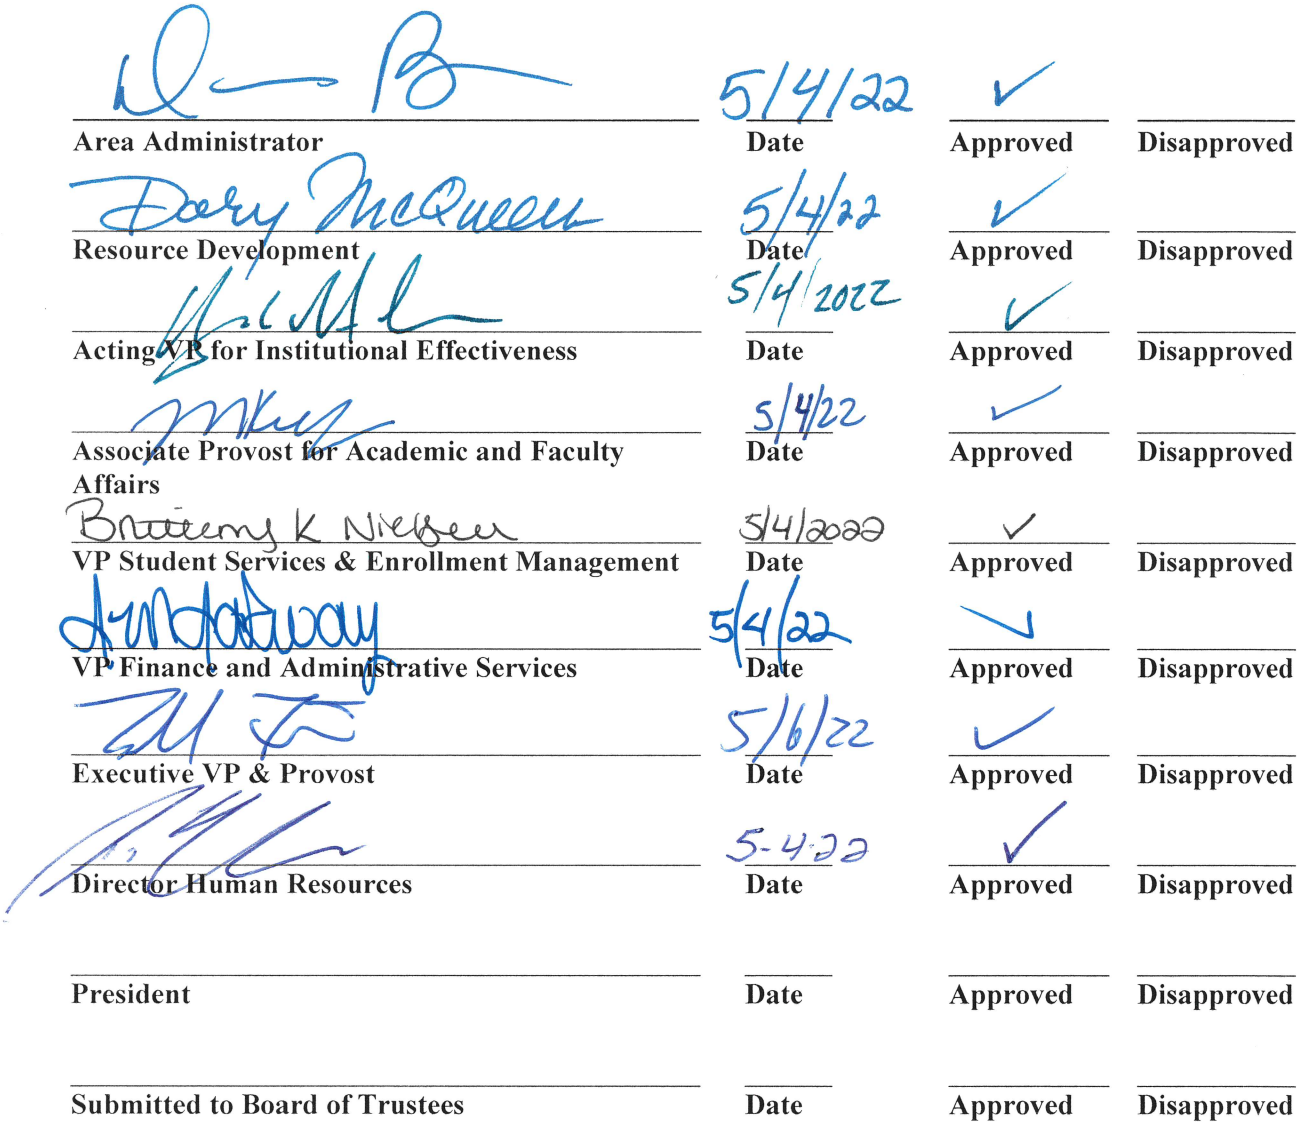 5/4/22 ✓
Area Administrator Date Approved Disapproved
Dory McQueen 5/4/22 ✓
Resource Development Date Approved Disapproved
5/4/2022 ✓
Acting VP for Institutional Effectiveness Date Approved Disapproved
5/4/22 ✓
Associate Provost for Academic and Faculty Date Approved Disapproved
Affairs
K Nielsen 5/4/2022 ✓
VP Student Services & Enrollment Management Date Approved Disapproved
5/4/22 ✓
VP Finance and Administrative Services Date Approved Disapproved
5/6/22 ✓
Executive VP & Provost Date Approved Disapproved
5-4-22 ✓
Director Human Resources Date Approved Disapproved
President Date Approved Disapproved
Submitted to Board of Trustees Date Approved Disapproved